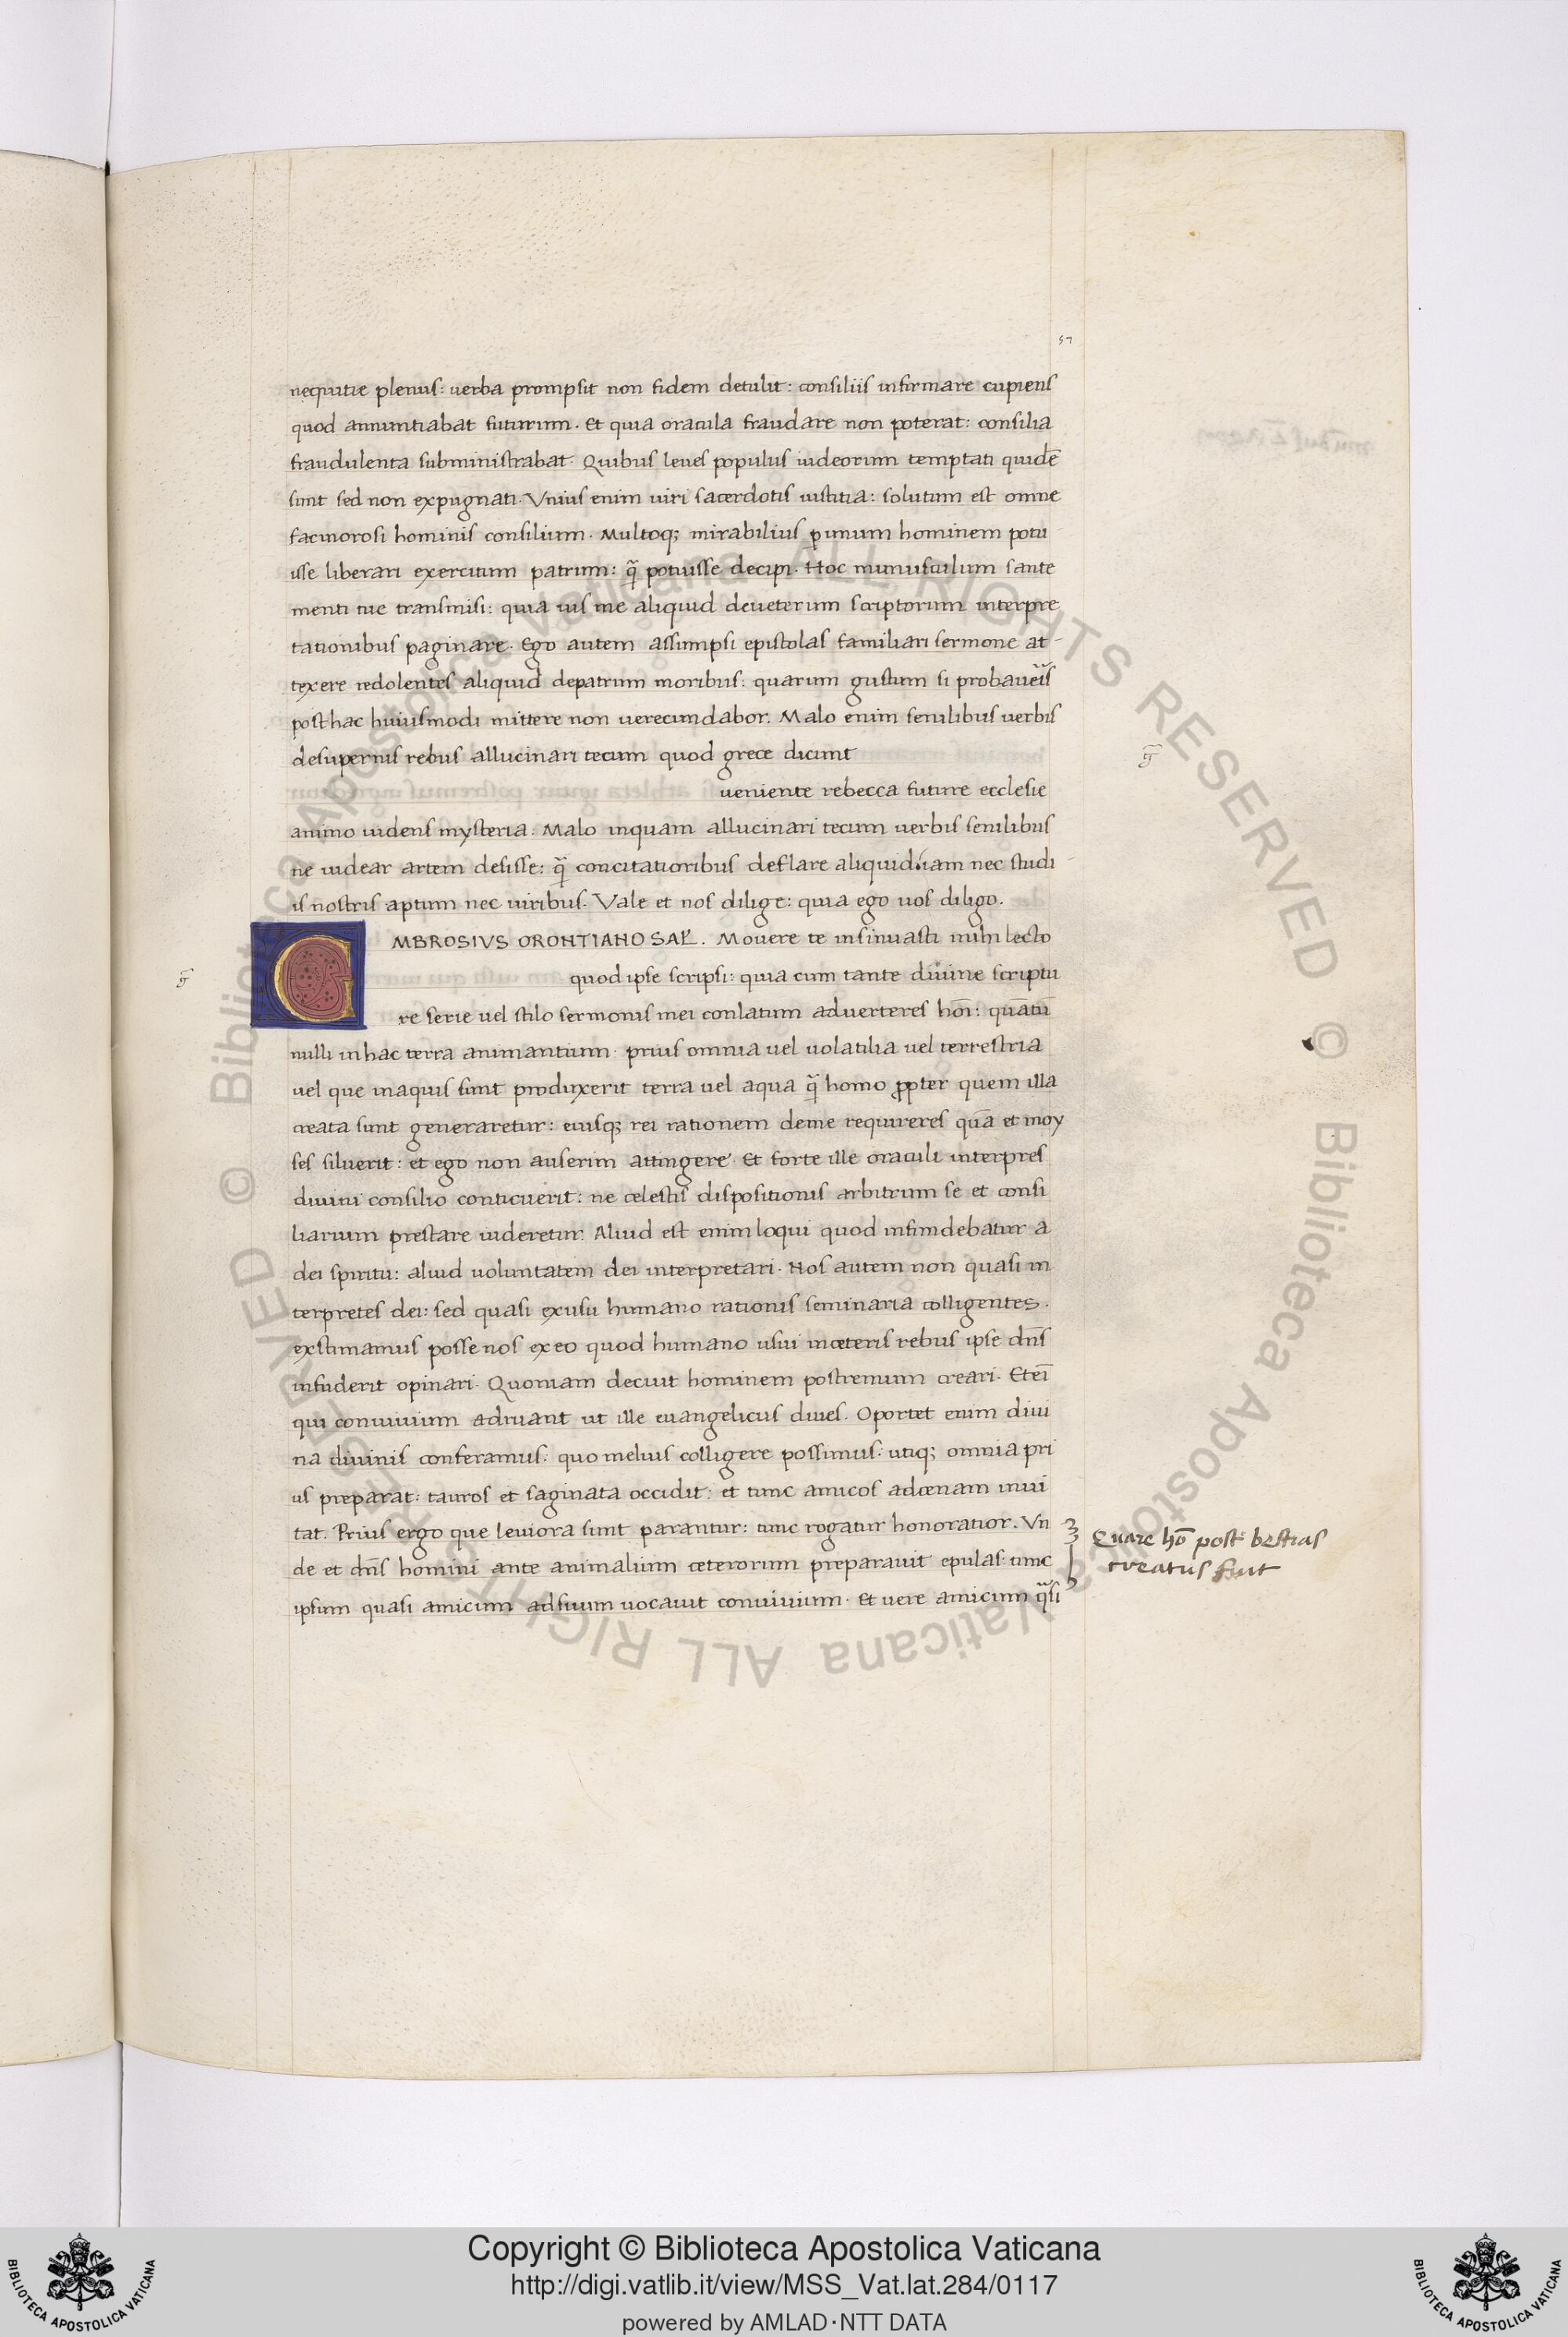 57
nequitie plenus: uerba prompsit non fidem detulit: consiliis infirmare cupiens
quod annuntiabat futurum. Et quia oracula fraudare non poterat: consilia
fraudulenta subministrabat. Quibus leues populus iudeorum temptati quidē
sunt sed non expugnati. Vnius enim uiri sacerdotis iustitia: solutum est omne
facinorosi hominis consilium. Multoq; mirabilius ꝑ unum hominem potu
isse liberari exercitum patrum: q̃ potuisse decipi. Hoc munusculum sante
menti tue transmisi: quia uis me aliquid deueterum scriptorum interpre
tationibus paginare. Ego autem assumpsi epistolas familiari sermone at-
texere redolentes aliquid depatrum moribus: quarum gustum si probaueis
posthac huiusmodi mittere non uerecundabor. Malo enim senilibus uerbis
desupernis rebus allucinari tecum quod grece dicunt
g̃
ueniente rebecca future ecclesie
animo uidens mysteria. Malo inquam allucinari tecum uerbis senilibus
ne uidear artem desisse: q̃ concitatioribus deflare aliquid iam nec studi-
is nostris aptum nec uiribus. Vale et nos dilige: quia ego uos diligo.
MBROSIVS ORONTIANO SAL̄. Mouere te insinuasti mihi lecto
g̃
quod ipse scripsi: quia cum tante diuine scriptu
re serie uel stilo sermonis mei conlatum aduerteres hoī: quātū
nulli inhac terra animantium. prius omnia uel uolatilia uel terrestria
uel que inaquis sunt produxerit terra uel aqua q̃ homo ꝓpter quem illa
creata sunt generaretur: eiusq; rei rationem deme requireres quā et moy
ses siluerit: et ego non auserim attingere. Et forte ille oraculi interpres
diuini consilio conticuerit: ne celestis dispositionis arbitrum se et consi
liarium prestare uideretur. Aliud est enim loqui quod infundebatur a
dei spiritu: aliud uoluntatem dei interpretari. Nos autem non quasi in
terpretes dei: sed quasi exusu humano rationis seminaria colligentes.
exstimamus posse nos exeo quod humano usui inceteris rebus ipse dn̄s
infuderit opinari. Quoniam decuit hominem postremum creari. Eteī
qui conuiuium adiuant ut ille euangelicus diues. Oportet enim diui
na diuinis conferamus: quo melius colligere possimus: utiq; omnia pri
us preparat: tauros et saginata occidit: et tunc amicos adcenam inui
tat. Prius ergo que leuiora sunt parantur: tunc rogatur honoratior. Vn
de et dn̄s homini ante animalium ceterorum preparauit epulas: tunc
ipsum quasi amicum adsuum uocauit conuiuium. Et uere amicum q̃si
Quare hō post bestias
creatus fuit
Copyright © Biblioteca Apostolica Vaticana
http://digi.vatlib.it/view/MSS_Vat.lat.284/0117
powered by AMLAD·NTT DATA
© Biblioteca Apostolica Vaticana ALL RIGHTS RESERVED
© Biblioteca Apostolica Vaticana ALL RIGHTS RESERVED
BIBLIOTECA APOSTOLICA VATICANA
BIBLIOTECA APOSTOLICA VATICANA